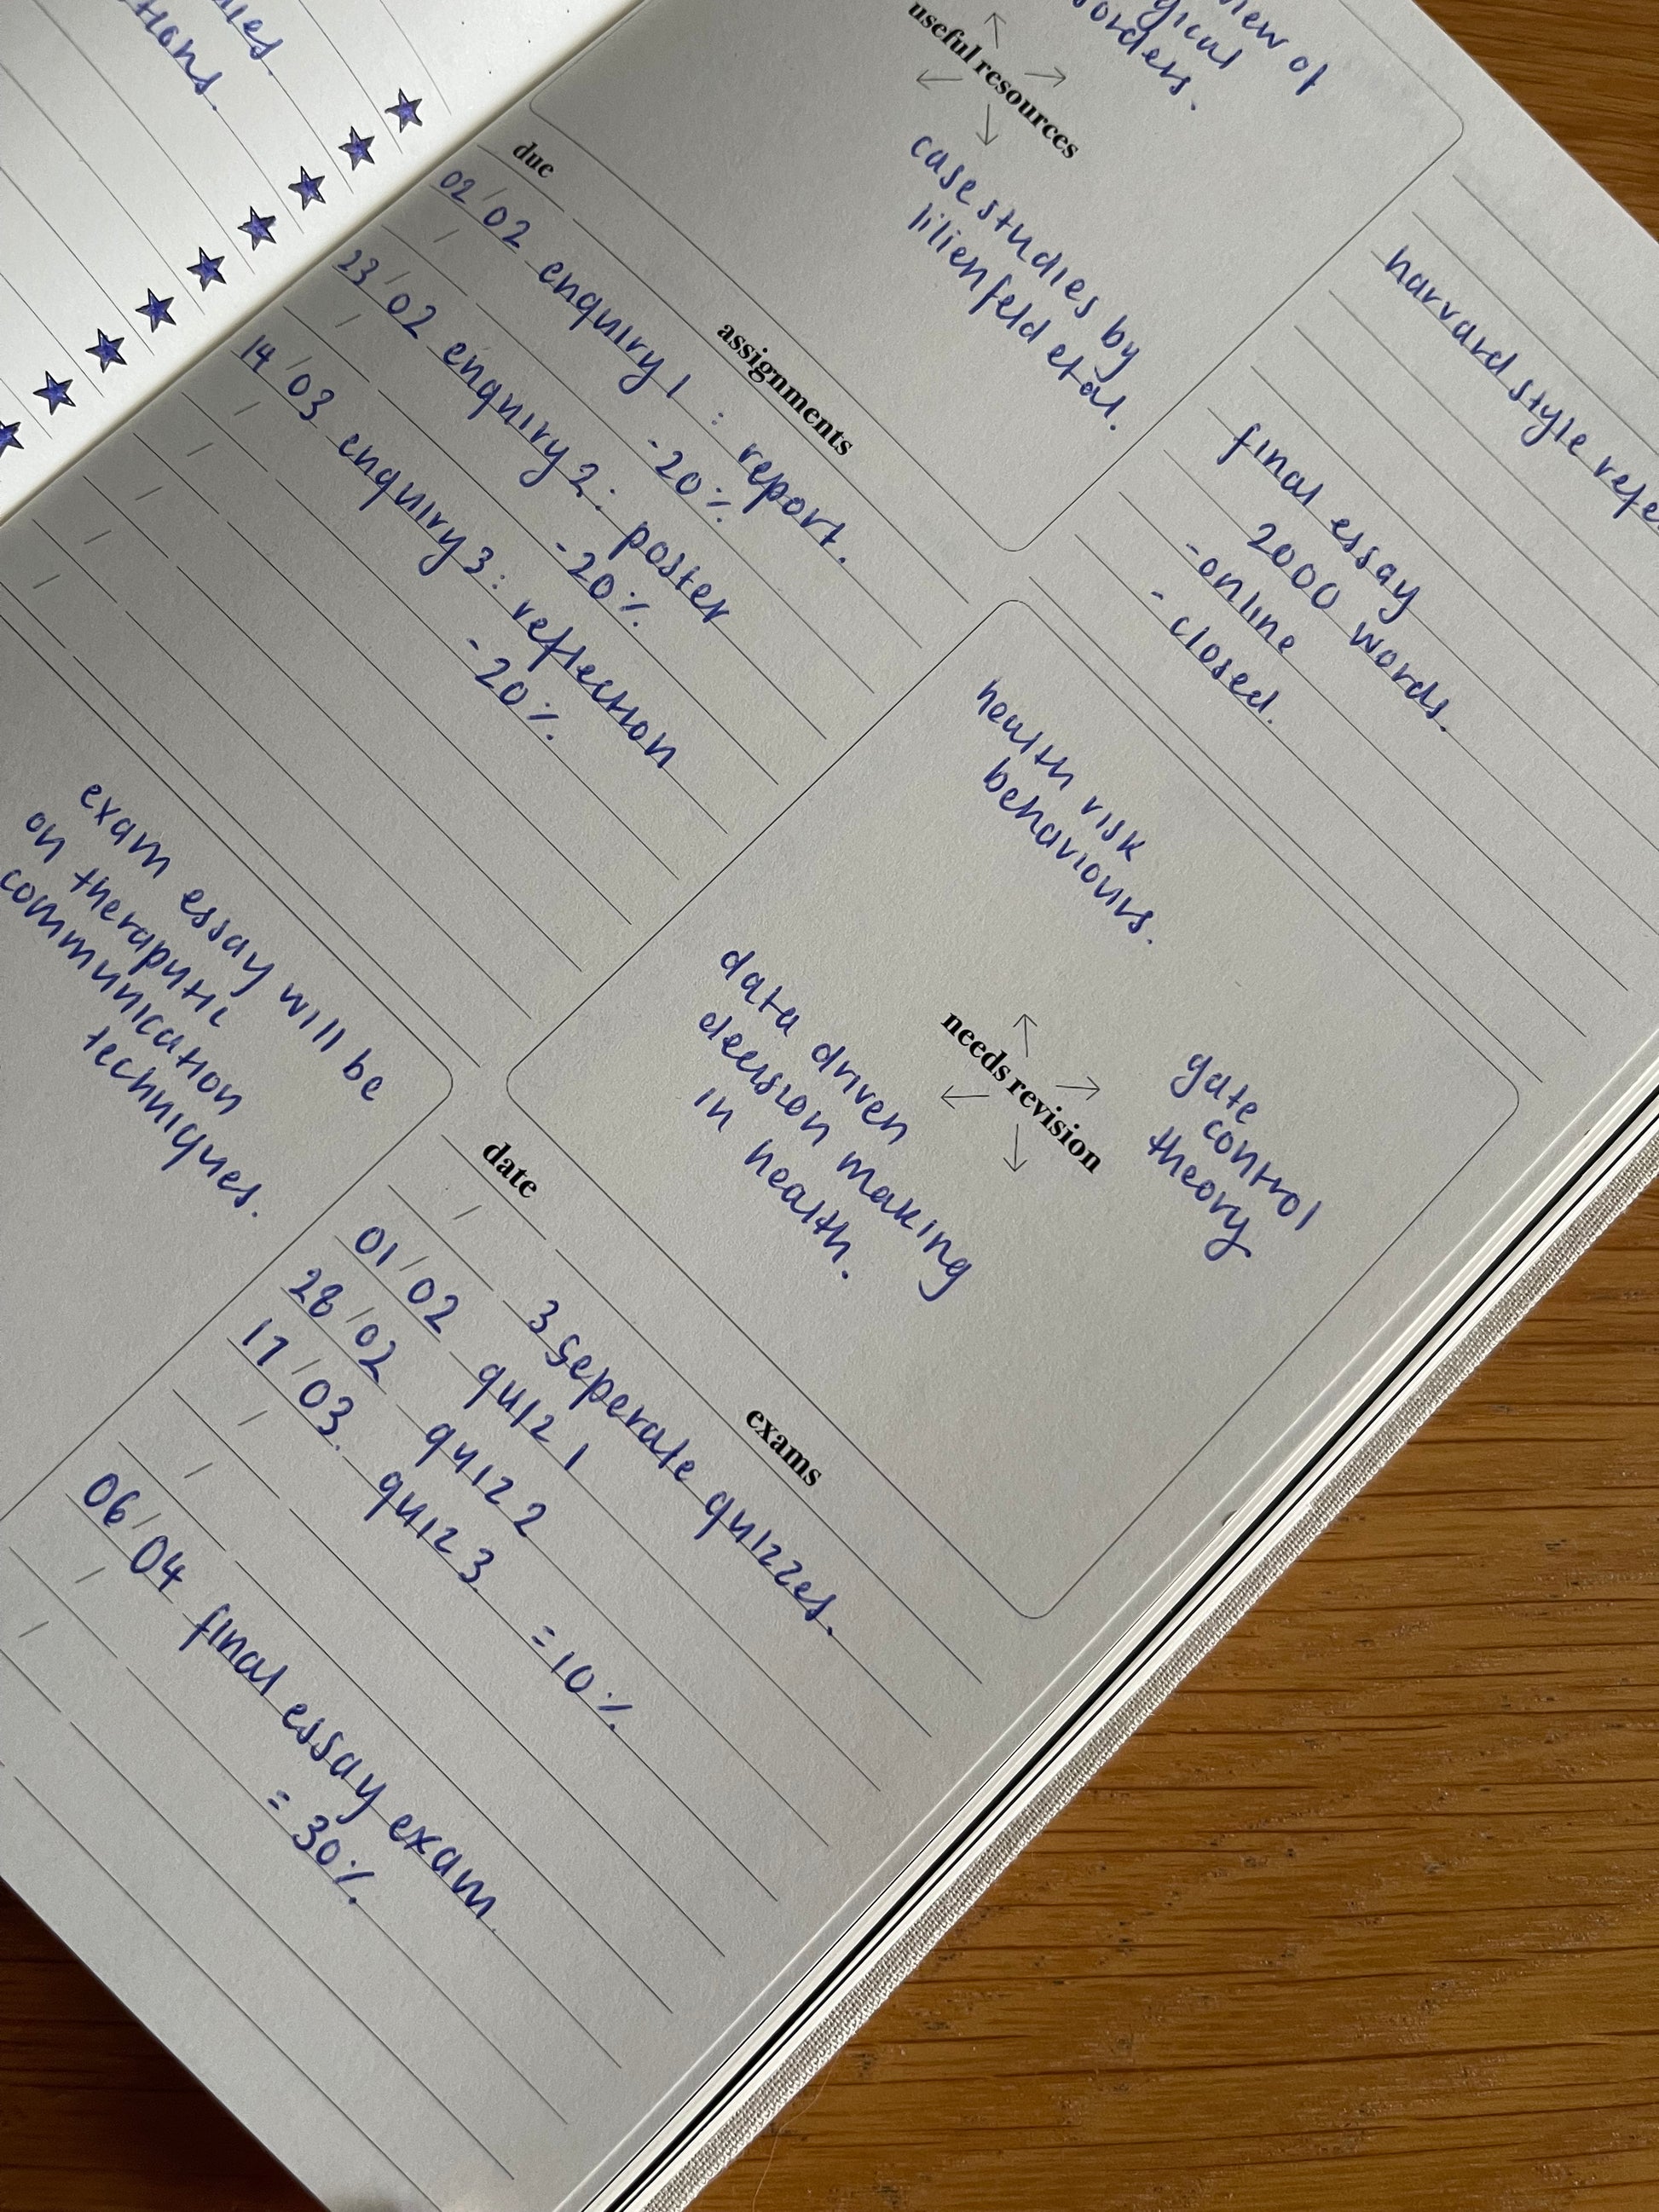 ies.
tions.
view of
gical
orders.
useful resources
case studies by
lilienfeld et al.
due
assignments
02/02 enquiry 1 : report.
-20%
23/02 enquiry 2: poster
-20%
14/03 enquiry 3: reflection
-20%
harvard style refe
final essay
2000 words.
-online
-closed.
health risk
behaviours.
data driven
decision making
in health.
needs revision
gate
control
theory
exam essay will be
on theraputic
communication
techniques.
date
exams
3 seperate quizzes.
01/02 quiz 1
28/02 quiz 2
17/03. quiz 3
=10%
06/04 final essay exam
=30%